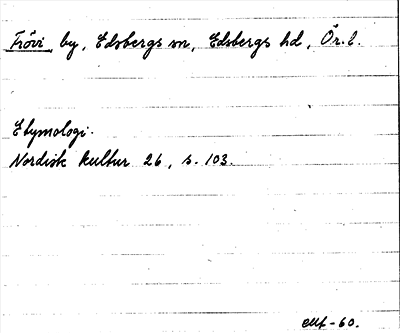 Frövi, by, Edsbergs sn, Edsbergs hd, Ör. l.
Etymologi.
Nordisk kultur 26, s. 103.
-60.